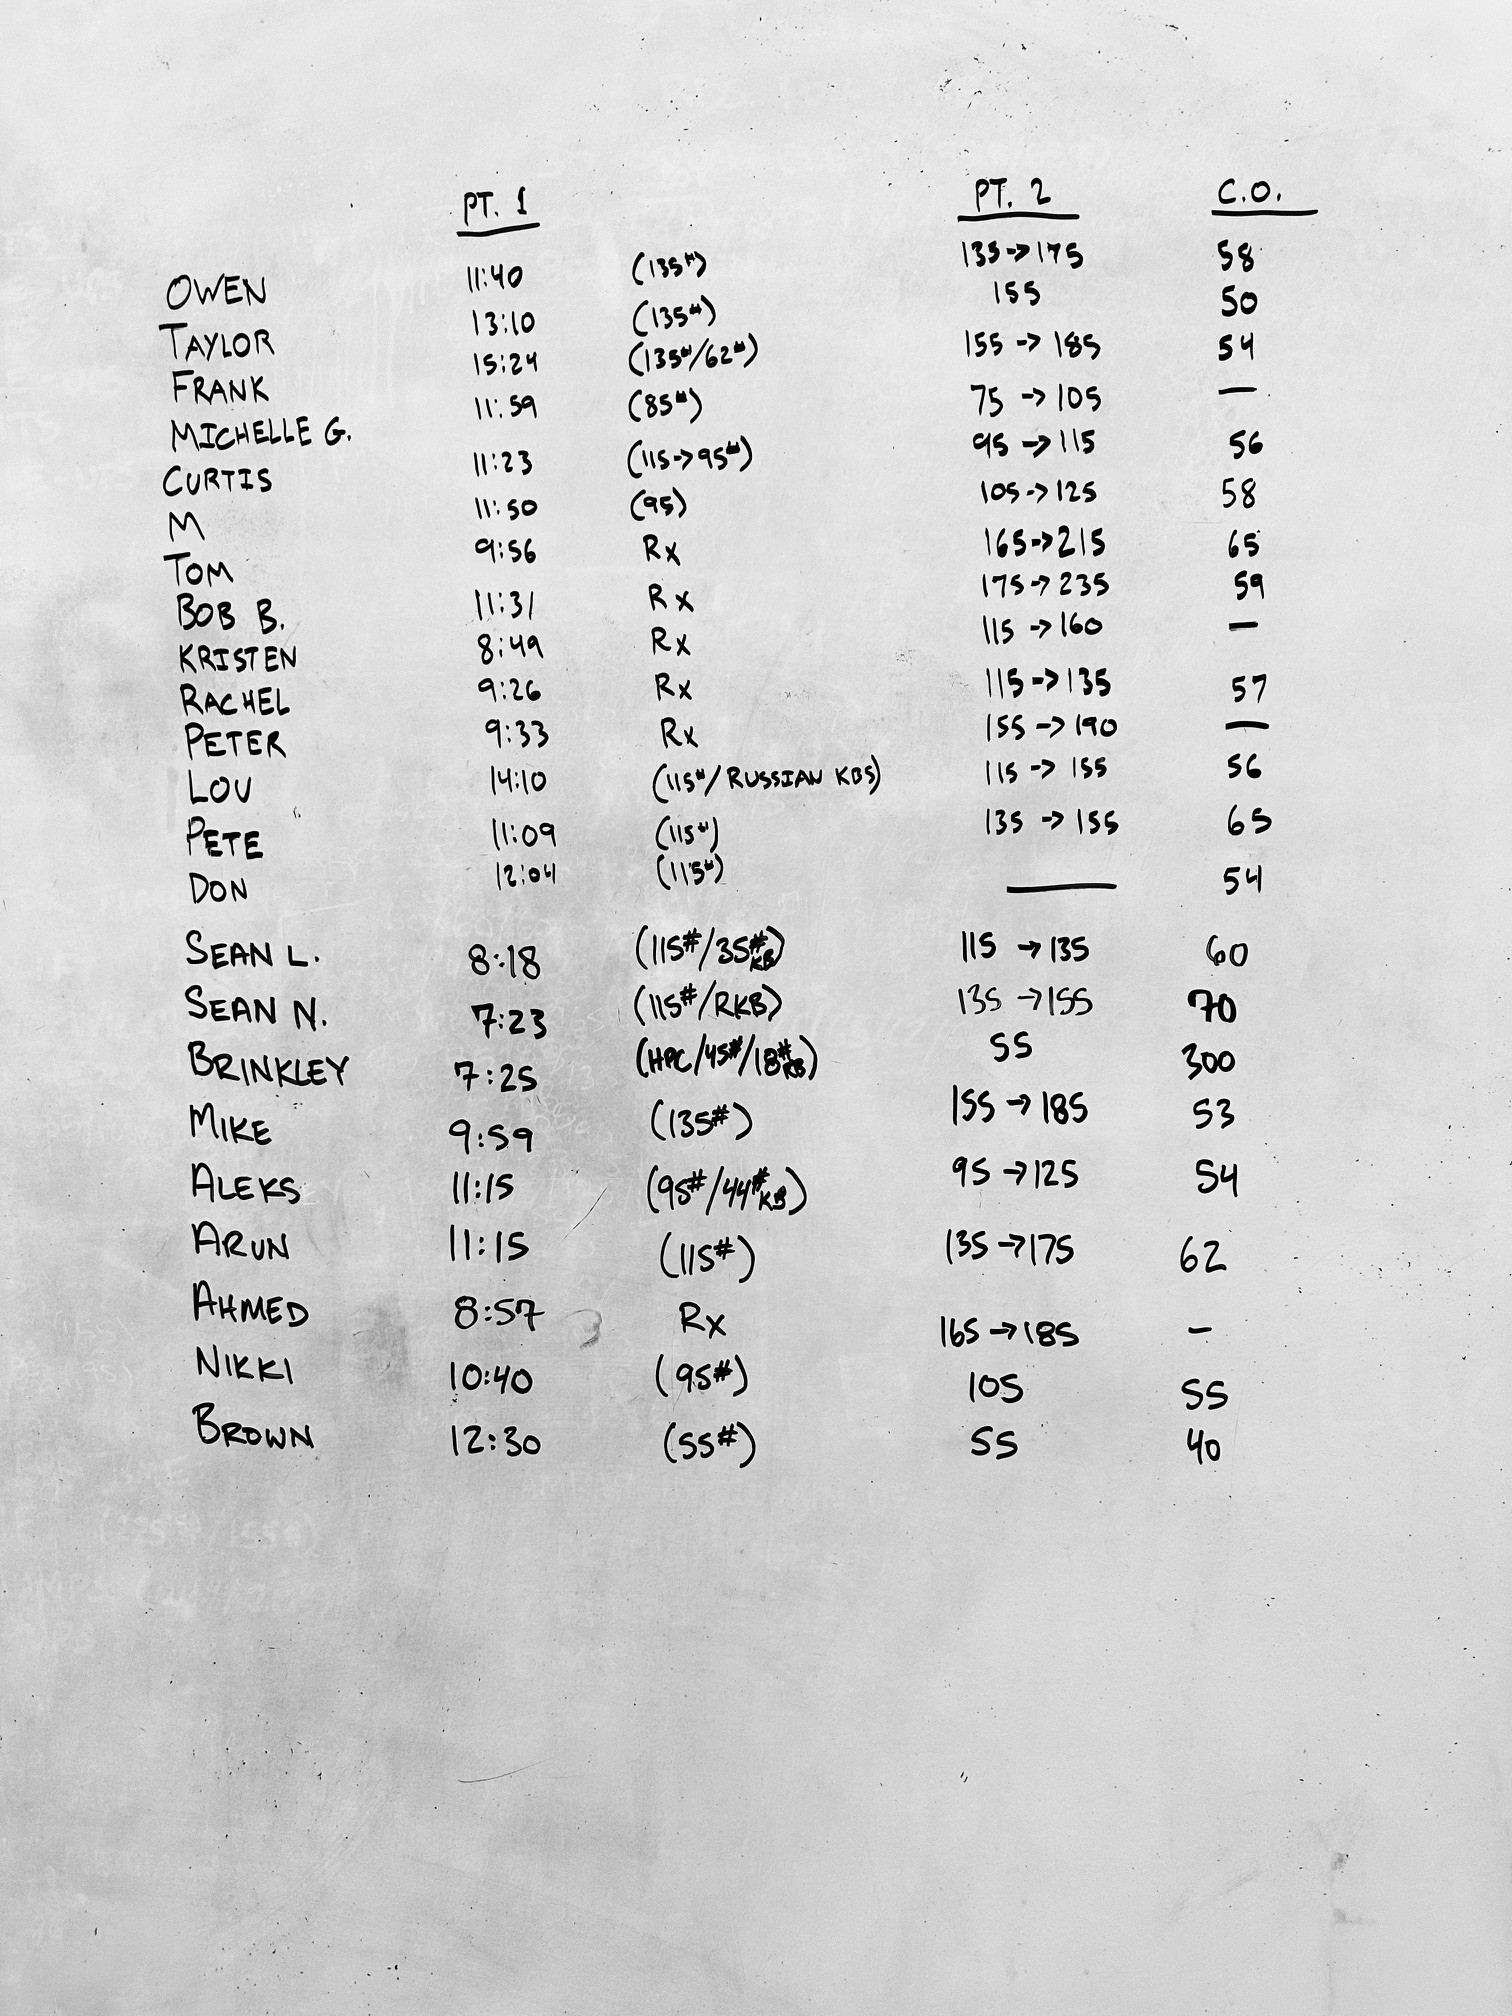 PT. 1 PT. 2 C.O.
OWEN 11:40 (135#) 135→175 58
TAYLOR 13:10 (135#) 155 50
FRANK 15:24 (135#/62#) 155→185 54
MICHELLE G. 11:59 (85#) 75→105 —
CURTIS 11:23 (115→95#) 95→115 56
M 11:50 (95) 105→125 58
TOM 9:56 Rx 165→215 65
BOB B. 11:31 Rx 175→235 59
KRISTEN 8:49 Rx 115→160 —
RACHEL 9:26 Rx 115→135 57
PETER 9:33 Rx 155→190 —
LOU 14:10 (115#/RUSSIAN KBS) 115→155 56
PETE 11:09 (115#) 135→155 65
DON 12:04 (115#) — 54
SEAN L. 8:18 (115#/35# KB) 115→135 60
SEAN N. 7:23 (115#/RKB) 135→155 70
BRINKLEY 7:25 (HPC/45#/18# KB) 55 300
MIKE 9:59 (135#) 155→185 53
ALEKS 11:15 (95#/44# KB) 95→125 54
ARUN 11:15 (115#) 135→175 62
AHMED 8:57 Rx 165→185 —
NIKKI 10:40 (95#) 105 55
BROWN 12:30 (55#) 55 40